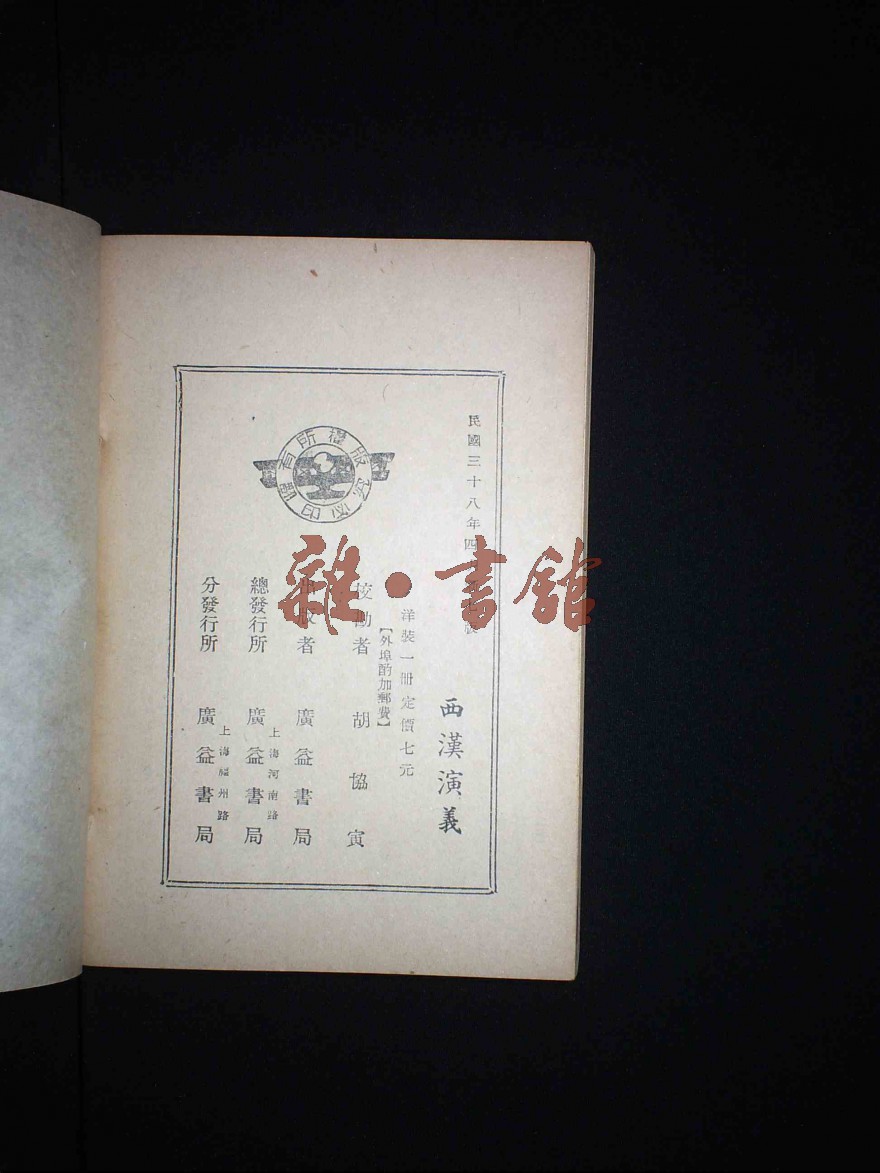 民國三十八年四
版
西漢演義
洋裝一册定價七元
【外埠酌加郵費】
校勘者 胡協寅
出版者 廣益書局
總發行所 廣益書局
上海河南路
分發行所 廣益書局
上海福州路
版權所有
翻印必究
雜·書館